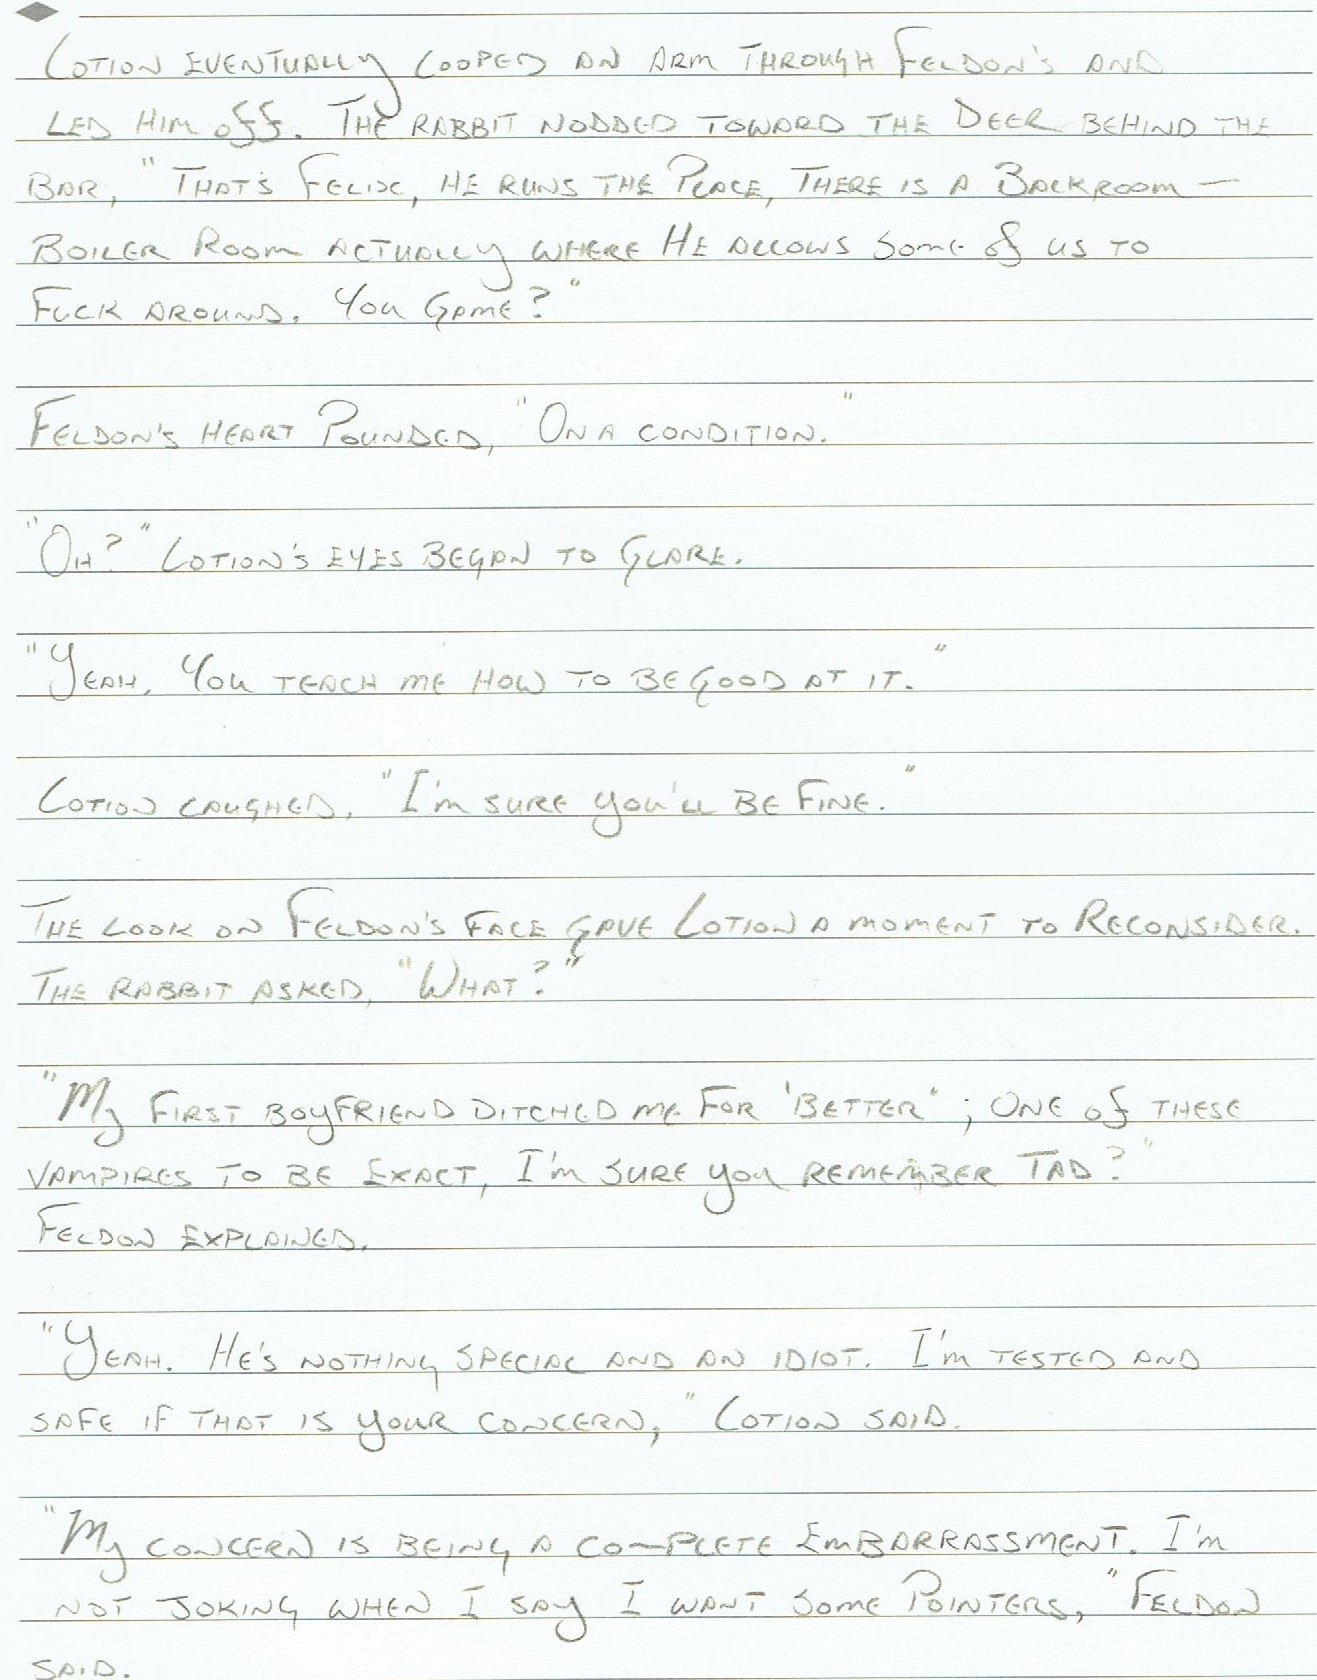 Lotion eventually looped an arm through Feldon's and
led him off. The rabbit nodded toward the Deer behind the
Bar, "That's Felix, he runs the Place, There is a Backroom —
Boiler Room actually where He allows some of us to
Fuck around. You Game?"
Feldon's heart Pounded, "On a condition."
"Oh?" Lotion's eyes began to Glare.
"Yeah, You teach me how to be Good at it."
Lotion laughed, "I'm sure you'll be fine."
The look on Feldon's face gave Lotion a moment to Reconsider.
The rabbit asked, "What?"
"My first boyfriend ditched me for 'Better"; one of these
vampires to be exact, I'm sure you remember Tad?"
Feldon explained.
"Yeah. He's nothing special and an idiot. I'm tested and
safe if that is your concern," Lotion said.
"My concern is being a complete Embarrassment. I'm
not joking when I say I want some Pointers," Feldon
said.